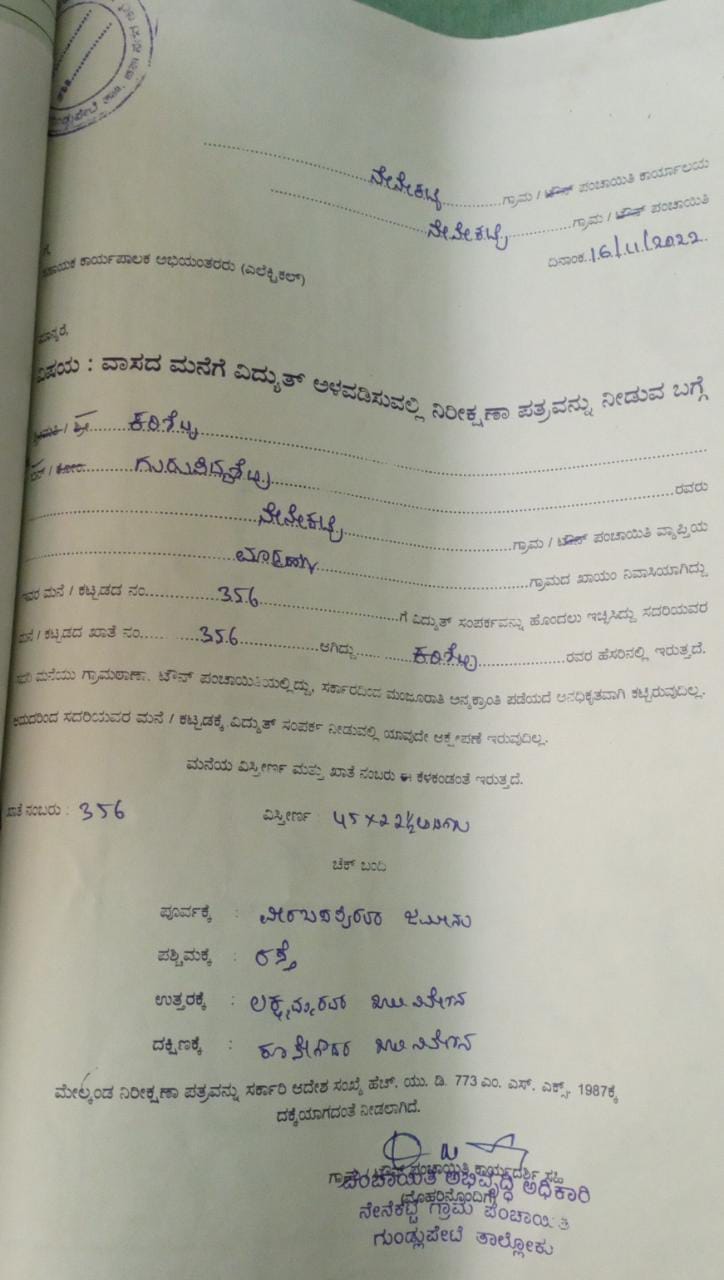 ನೇನೇಕಟ್ಟೆ ಗ್ರಾಮ / ಟೌನ್ ಪಂಚಾಯಿತಿ ಕಾರ್ಯಾಲಯ
ನೇನೇಕಟ್ಟೆ ಗ್ರಾಮ / ಟೌನ್ ಪಂಚಾಯಿತಿ
ದಿನಾಂಕ 16/11/2022
ಗೆ,
ಸಹಾಯಕ ಕಾರ್ಯಪಾಲಕ ಅಭಿಯಂತರರು (ಎಲೆಕ್ಟ್ರಿಕಲ್)
ಮಾನ್ಯರೆ,
ವಿಷಯ : ವಾಸದ ಮನೆಗೆ ವಿದ್ಯುತ್ ಅಳವಡಿಸುವಲ್ಲಿ ನಿರೀಕ್ಷಣಾ ಪತ್ರವನ್ನು ನೀಡುವ ಬಗ್ಗೆ
ಶ್ರೀಮತಿ / ಶ್ರೀ ಕರಿಶೆಟ್ಟಿ
ಬಿನ್ / ಕೋಂ ಗುರುಸಿದ್ದಶೆಟ್ಟಿ ರವರು
ನೇನೇಕಟ್ಟೆ ಗ್ರಾಮ / ಟೌನ್ ಪಂಚಾಯಿತಿ ವ್ಯಾಪ್ತಿಯ
ಗ್ರಾಮದ ಖಾಯಂ ನಿವಾಸಿಯಾಗಿದ್ದು
ಇವರ ಮನೆ / ಕಟ್ಟಡದ ನಂ. 356 ಗೆ ವಿದ್ಯುತ್ ಸಂಪರ್ಕವನ್ನು ಹೊಂದಲು ಇಚ್ಚಿಸಿದ್ದು ಸದರಿಯವರ
ಮನೆ / ಕಟ್ಟಡದ ಖಾತೆ ನಂ. 356 ಆಗಿದ್ದು ಕರಿಶೆಟ್ಟಿ ರವರ ಹೆಸರಿನಲ್ಲಿ ಇರುತ್ತದೆ.
ಸದರಿ ಮನೆಯು ಗ್ರಾಮಠಾಣಾ, ಟೌನ್ ಪಂಚಾಯಿತಿಯಲ್ಲಿದ್ದು, ಸರ್ಕಾರದಿಂದ ಮಂಜೂರಾತಿ ಅನ್ಯಕ್ರಾಂತಿ ಪಡೆಯದೆ ಅನಧಿಕೃತವಾಗಿ ಕಟ್ಟಿರುವುದಿಲ್ಲ.
ಆದುದರಿಂದ ಸದರಿಯವರ ಮನೆ / ಕಟ್ಟಡಕ್ಕೆ ವಿದ್ಯುತ್ ಸಂಪರ್ಕ ನೀಡುವಲ್ಲಿ ಯಾವುದೇ ಆಕ್ಷೇಪಣೆ ಇರುವುದಿಲ್ಲ.
ಮನೆಯ ವಿಸ್ತೀರ್ಣ ಮತ್ತು ಖಾತೆ ನಂಬರು ಈ ಕೆಳಕಂಡಂತೆ ಇರುತ್ತದೆ.
ಖಾತೆ ನಂಬರು : 356 ವಿಸ್ತೀರ್ಣ : 45 x 22½ ಅಡಿಗಳು
ಚೆಕ್ ಬಂದಿ
ಪೂರ್ವಕ್ಕೆ : ಜಮೀನು
ಪಶ್ಚಿಮಕ್ಕೆ : ರಸ್ತೆ
ಉತ್ತರಕ್ಕೆ : ನಿವೇಶನ
ದಕ್ಷಿಣಕ್ಕೆ : ನಿವೇಶನ
ಮೇಲ್ಕಂಡ ನಿರೀಕ್ಷಣಾ ಪತ್ರವನ್ನು ಸರ್ಕಾರಿ ಆದೇಶ ಸಂಖ್ಯೆ ಹೆಚ್. ಯು. ಡಿ. 773 ಎಂ. ಎಸ್. ಎಕ್ಸ್. 1987ಕ್ಕೆ
ದಕ್ಕೆಯಾಗದಂತೆ ನೀಡಲಾಗಿದೆ.
ಗ್ರಾಮ / ಟೌನ್ ಪಂಚಾಯಿತಿ ಕಾರ್ಯದರ್ಶಿ ಸಹಿ
ಪಂಚಾಯಿತಿ ಅಭಿವೃದ್ಧಿ ಅಧಿಕಾರಿ
(ಮೊಹರಿನೊಂದಿಗೆ)
ನೇನೆಕಟ್ಟೆ ಗ್ರಾಮ ಪಂಚಾಯಿತಿ
ಗುಂಡ್ಲುಪೇಟೆ ತಾಲ್ಲೋಕು